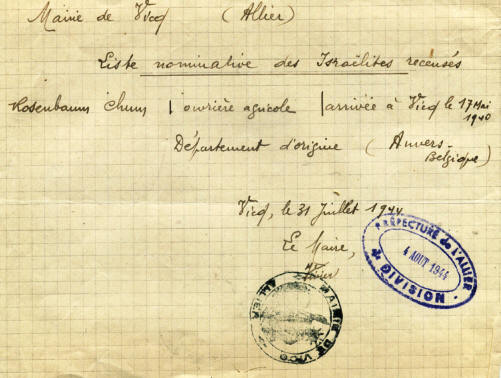 Mairie de Vicq (Allier)
Liste nominative des Israëlites recensés
Rosenbaum Chum ouvrière agricole arrivée à Vicq le 17 Mai 1940
Département d'origine (Anvers - Belgique)
Vicq, le 31 Juillet 1944
Le Maire,
PRÉFECTURE de l'ALLIER
4 AOUT 1944
DIVISION
MAIRIE DE VICQ
ALLIER